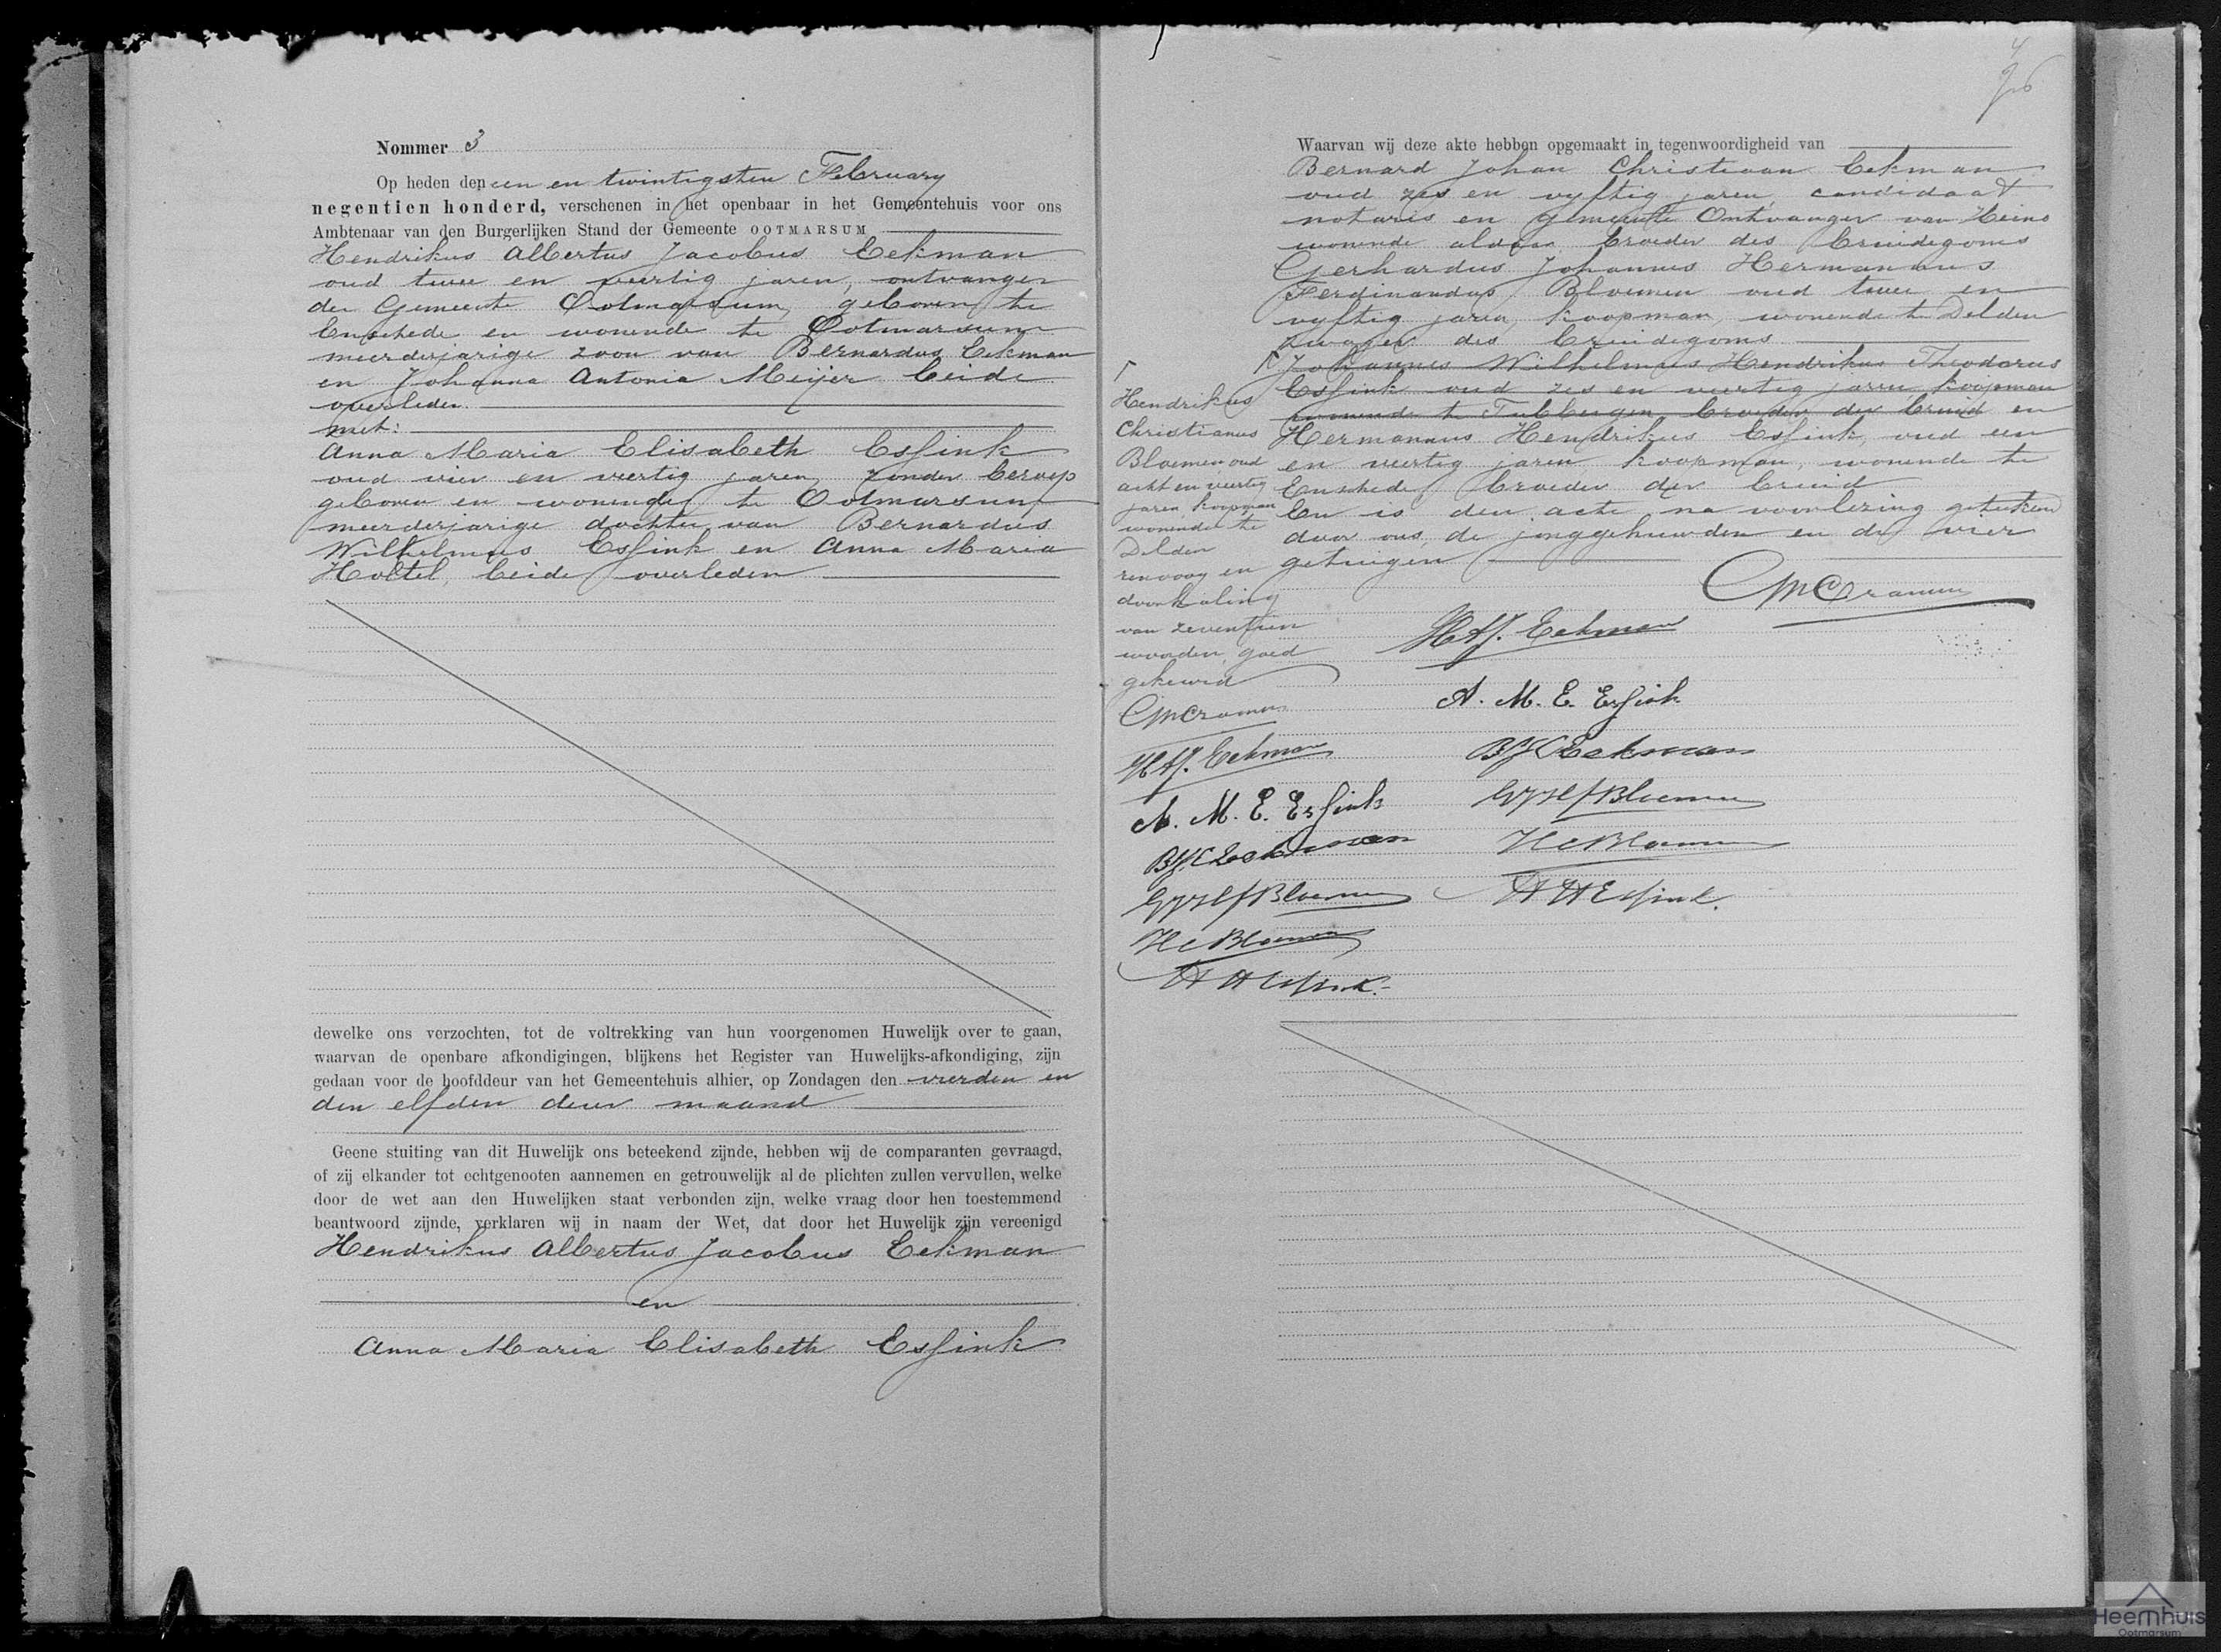 Nommer 3
Op heden den een en twintigsten February
negentien honderd, verschenen in het openbaar in het Gemeentehuis voor ons
Ambtenaar van den Burgerlijken Stand der Gemeente OOTMARSUM
Hendrikus Albertus Jacobus Eekman
oud twee en veertig jaren, ontvanger
der Gemeente Ootmarsum, geboren te
Enschede en wonende te Ootmarsum
meerderjarige zoon van Bernardus Eekman
en Johanna Antonia Meijer beide
overleden
met:
Anna Maria Elisabeth Essink
oud vier en veertig jaren, zonder beroep
geboren en wonende te Ootmarsum
meerderjarige dochter van Bernardus
Wilhelmus Essink en Anna Maria
Holtel, beide overleden
dewelke ons verzochten, tot de voltrekking van hun voorgenomen Huwelijk over te gaan,
waarvan de openbare afkondigingen, blijkens het Register van Huwelijks-afkondiging, zijn
gedaan voor de hoofddeur van het Gemeentehuis alhier, op Zondagen den vierden en
den elfden dezer maand
Geene stuiting van dit Huwelijk ons beteekend zijnde, hebben wij de comparanten gevraagd,
of zij elkander tot echtgenooten aannemen en getrouwelijk al de plichten zullen vervullen, welke
door de wet aan den Huwelijken staat verbonden zijn, welke vraag door hen toestemmend
beantwoord zijnde, verklaren wij in naam der Wet, dat door het Huwelijk zijn vereenigd
Hendrikus Albertus Jacobus Eekman
en
Anna Maria Elisabeth Essink
Waarvan wij deze akte hebben opgemaakt in tegenwoordigheid van
Bernard Johan Christiaan Eekman
oud zes en vyftig jaren, candidaat
notaris en gemeente Ontvanger van Heino
wonende aldaar broeder des bruidegoms
Gerhardus Johannes Hermannus
Ferdinandus Bloemen oud twee en
vyftig jaren, koopman, wonende te Delden
zwager des bruidegoms
Johannes Wilhelmus Hendrikus Theodorus
Essink oud zes en veertig jaren koopman
wonende te Tubbergen, broeder der bruid en
Hermannus Hendrikus Essink, oud een
en veertig jaren koopman, wonende te
Enschede, broeder der bruid
En is deze acte na voorlezing geteekend
door ons, de jonggehuwden en de vier
getuigen
Hendrikus
Christianus
Bloemen oud
acht en veertig
jaren, koopman
wonende te
Delden
renvooy en
doorhaling
van zeventien
woorden, goed
gekeurd
CM Cramer
HAJ. Eekman
A. M. E. Essink
BJC Eekman
GJHF Bloemen
HC Bloemen
HH Essink.
CM Cramer
HAJ. Eekman
A. M. E. Essink
BJC Eekman
GJHF Bloemen
HC Bloemen
HH Essink.
Heemhuis
Ootmarsum